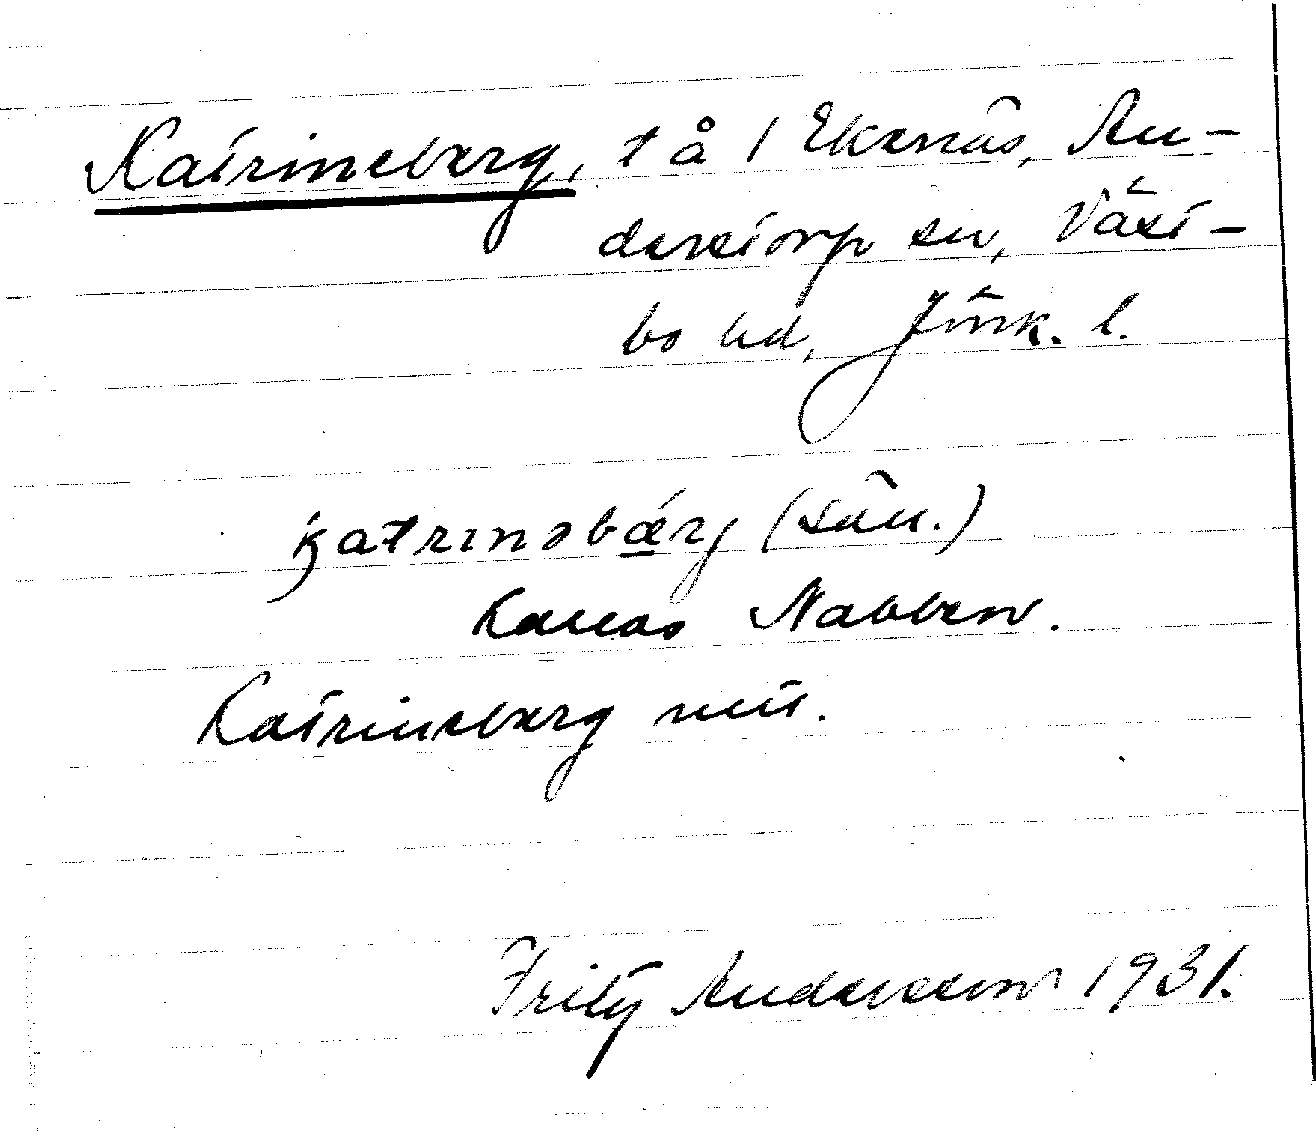 Katrineberg, t å 1 Ekenäs, An-
derstorp sn, Väst-
bo hd, Jönk. l.
katrınəbærj (sän.)
Kallas Nabben.
Katrineberg mtl.
Fritz Andersson 1931.